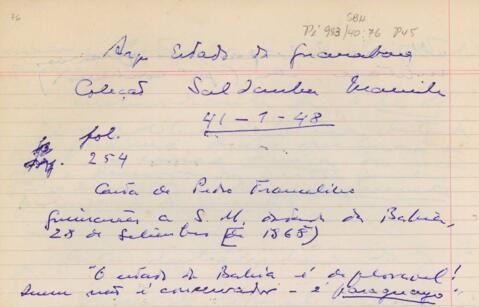 76
SBH
Pi 983/40:76 P45
Arq. Estado da Guanabara
Coleção Saldanha Marinho
41-1-48
fol.
254
Carta de Pedro Francelino
Guimarães a S. M. datada da Bahia,
28 de Setembro (de 1868)
"O estado da Bahia é deploravel!
Quem não é conservador - é paraguayo!